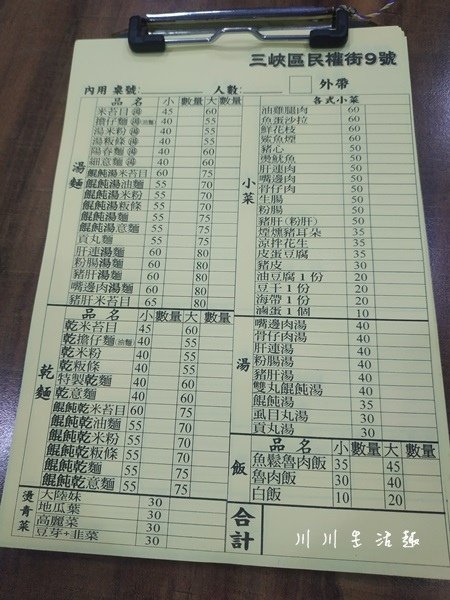 三峽區民權街9號
內用 桌號: 人數: 外帶
品名 小 數量 大 數量
湯麵
米苔目 湯 45 60
擔仔麵 湯(油麵) 40 55
湯米粉 湯 40 55
湯粄條 湯 40 55
陽春麵 湯 40 60
細意麵 湯 40 60
餛飩湯米苔目 60 75
餛飩湯油麵 55 75
餛飩湯米粉 55 75
餛飩湯粄條 55 75
餛飩湯麵 55 75
餛飩湯意麵 55 75
貢丸麵 55 75
肝連湯麵 60 80
粉腸湯麵 60 80
豬肝湯麵 60 80
嘴邊肉湯麵 60 80
豬肝米苔目 65 80
品名 小 數量 大 數量
乾麵
乾米苔目 45 60
乾擔仔麵(油麵) 40 55
乾米粉 40 55
乾粄條 40 55
特製乾麵 40 60
乾意麵 40 60
餛飩乾米苔目 60 75
餛飩乾油麵 55 75
餛飩乾米粉 55 75
餛飩乾粄條 55 75
餛飩乾麵 55 75
餛飩乾意麵 55 75
燙青菜
大陸妹 30
地瓜葉 30
高麗菜 30
豆芽+韭菜 30
各式小菜
小菜
油雞腿肉 60
魚蛋沙拉 60
鮮花枝 60
鯊魚煙 60
豬心 50
燙魷魚 50
肝連肉 50
嘴邊肉 50
骨仔肉 50
生腸 50
粉腸 50
豬肝(粉肝) 50
煙燻豬耳朵 35
涼拌花生 35
皮蛋豆腐 35
豬皮 30
油豆腐1份 20
豆干1份 20
海帶1份 20
滷蛋1個 10
湯
嘴邊肉湯 40
骨仔肉湯 40
肝連湯 40
粉腸湯 40
豬肝湯 40
雙丸餛飩湯 40
餛飩湯 35
虱目丸湯 30
貢丸湯 30
飯
品名 小 數量 大 數量
魚鬆魯肉飯 35 45
魯肉飯 30 40
白飯 10 20
合計
川川生活趣